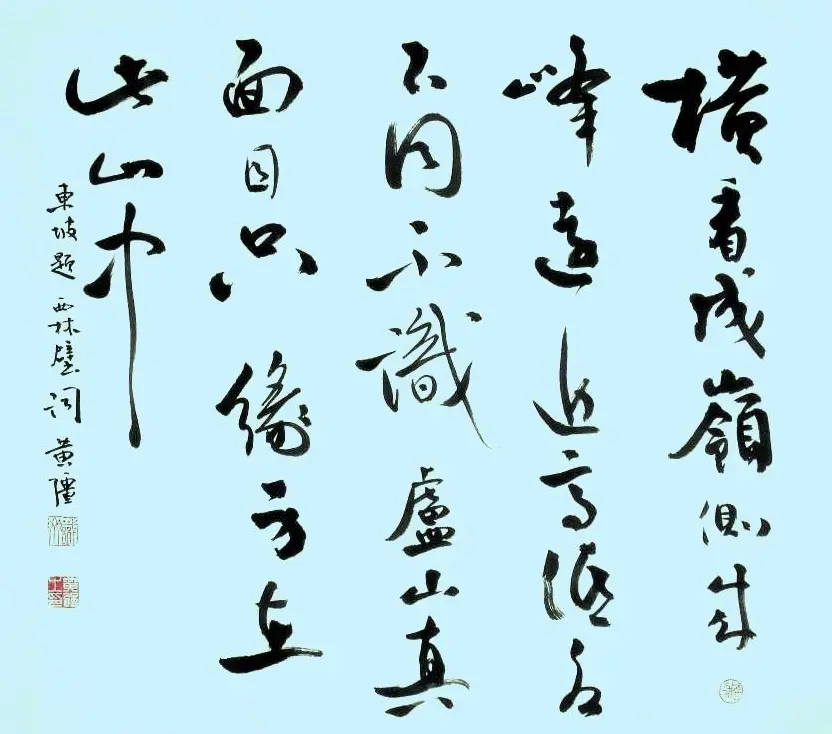 橫看成嶺側成
峰遠近高低各
不同不識盧山真
面目只緣身在
此山中
東坡題西林壁詞 黃